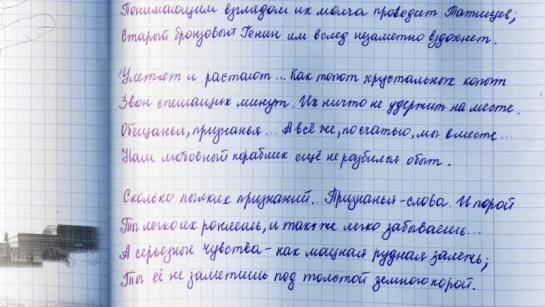 Понимающим взглядом их молча проводит Татищев;
Старый бронзовый Генин им вслед незаметно вздохнет.
Улетят и растают... Как топот хрустальных копыт
Звон спешащих минут. Их ничто не удержит на месте.
Обещанья, признанья... А всё же, по счастью, мы вместе...
Наш любовный кораблик ещё не разбился о быт.
Сколько пылких признаний... Признанья - слова. И порой
Ты легко их роняешь, и так же легко забываешь...
А серьезные чувства - как мощная рудная залежь;
Ты её не заметишь под толстой земною корой.